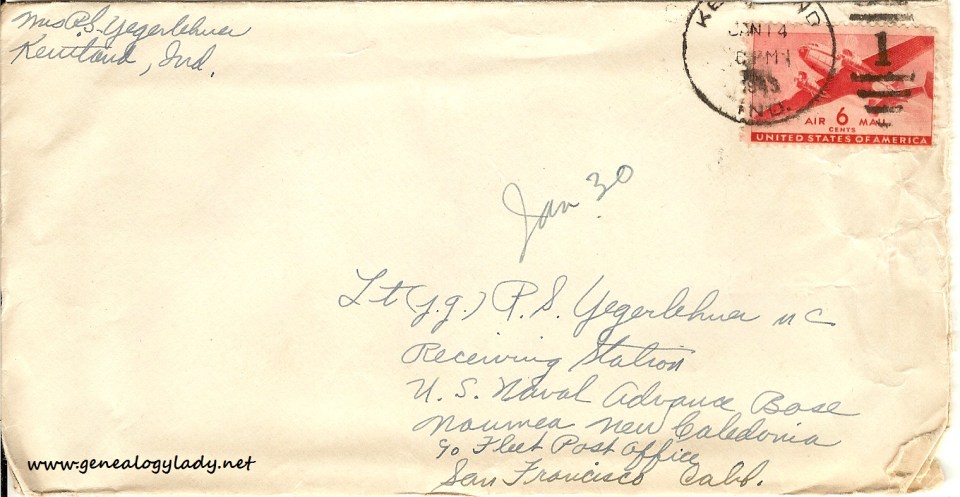 Mrs P.S. Yegerlehner
Kentland, Ind.
JAN 14
PM
IND.
1
AIR 6 MAIL
CENTS
UNITED STATES OF AMERICA
Jan 30
Lt (j.g.) P.S. Yegerlehner MC
Receiving Station
U.S. Naval Advance Base
Noumea New Caledonia
c/o Fleet Post Office
San Francisco Calif.
www.genealogylady.net